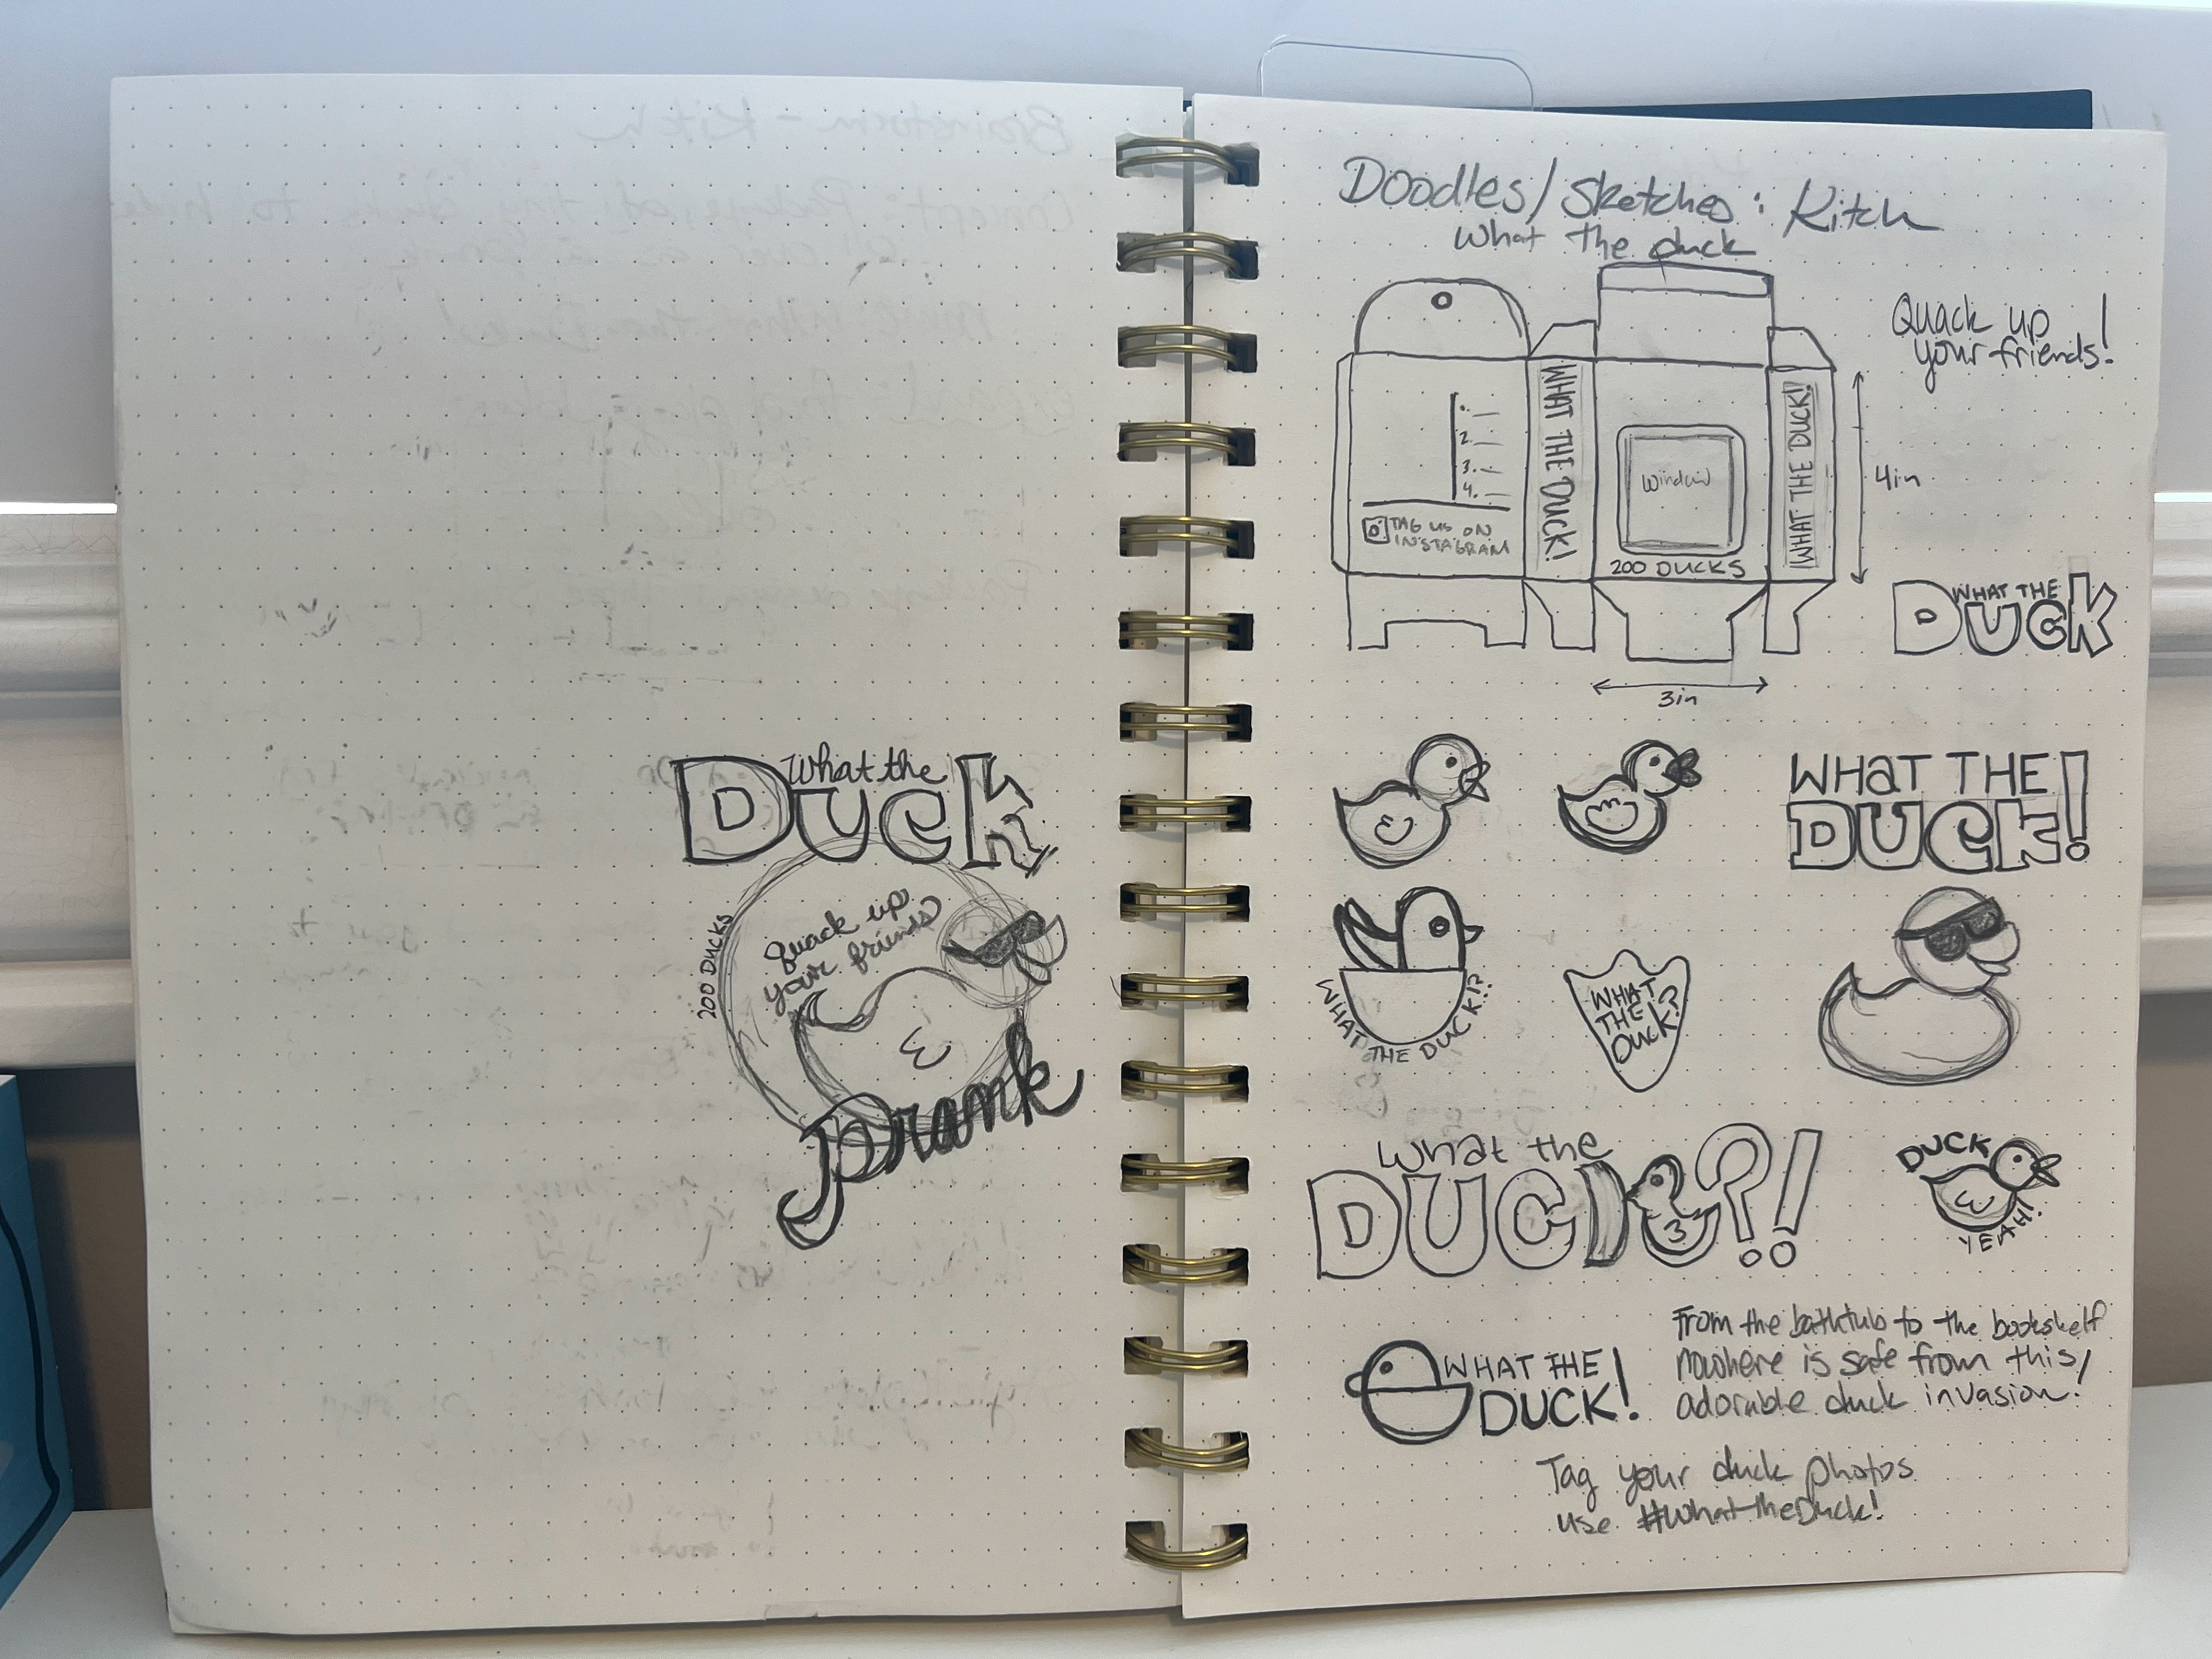 What the
Duck
200 Ducks
Quack up
your friends
Prank
Doodles/Sketches: Kitch
What the duck
Quack up
your friends!
WHAT THE DUCK!
WHAT THE DUCK!
1.
2.
3.
4.
Window
4in
TAG US ON
INSTAGRAM
200 DUCKS
3in
WHAT THE
DUCK
WHAT THE
DUCK!
WHAT THE DUCK!?
WHAT
THE
DUCK!?
What the
DUCK?!
DUCK
YEAH!
WHAT THE
DUCK!
From the bathtub to the bookshelf
nowhere is safe from this
adorable duck invasion!
Tag your duck photos
use #WhattheDuck!